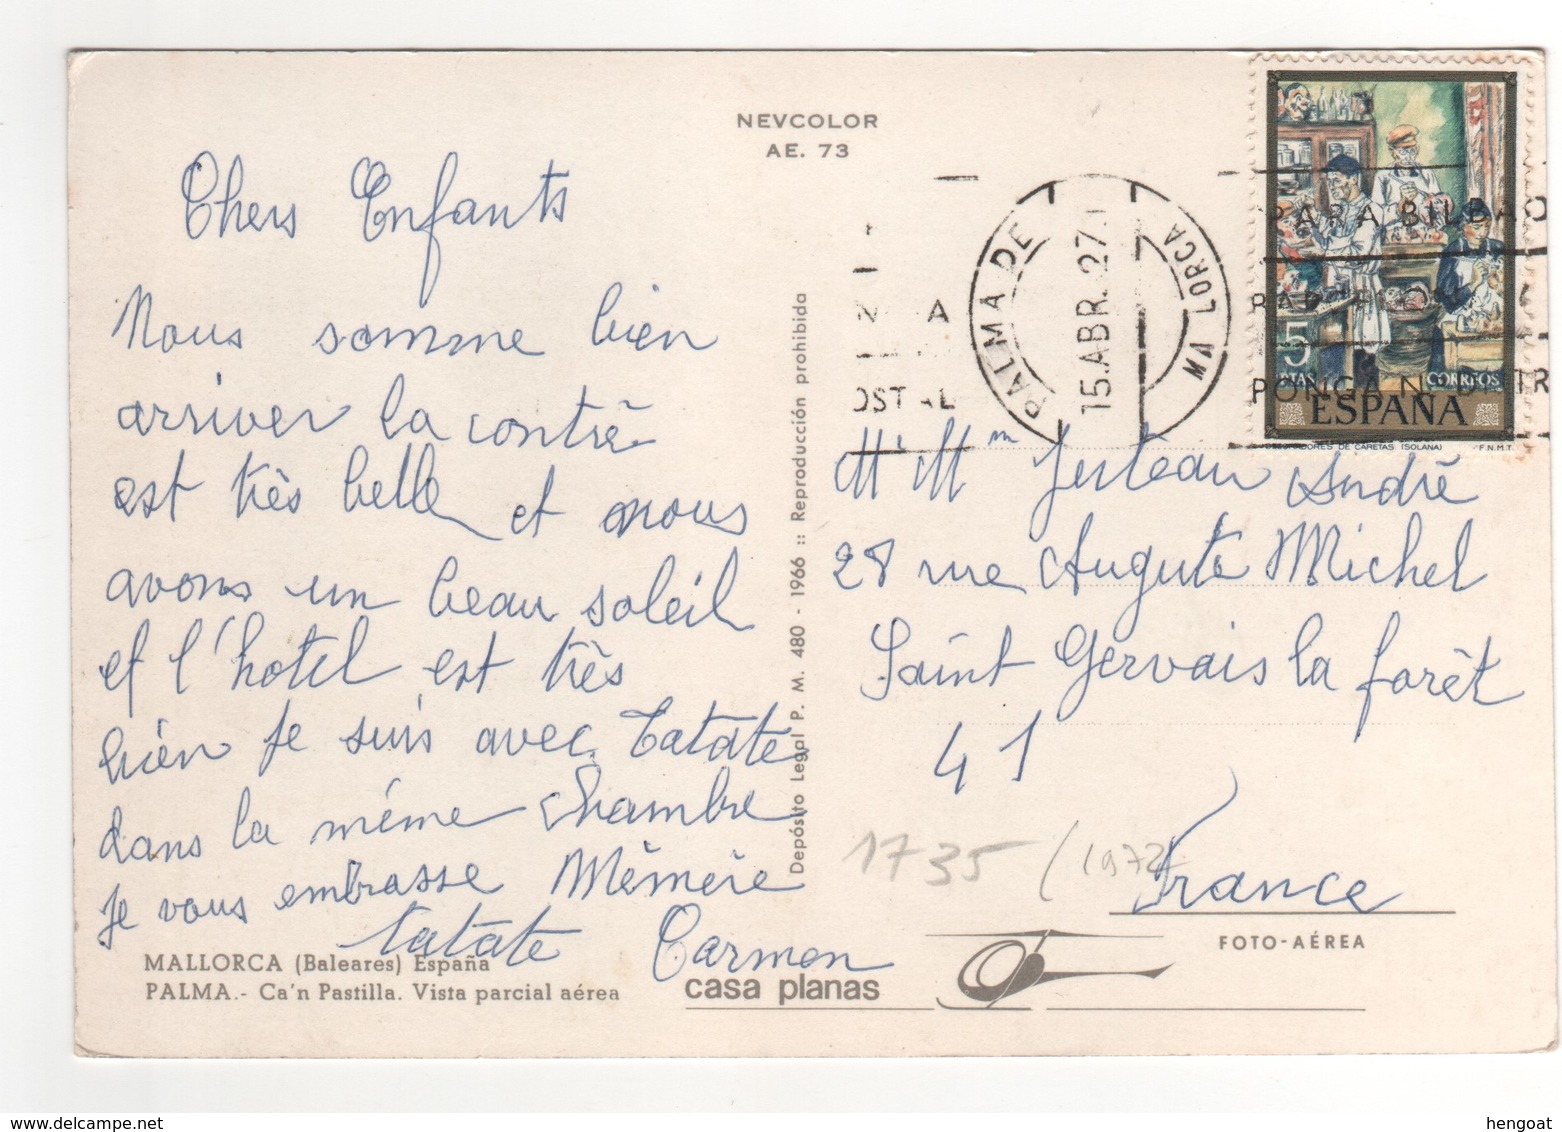 NEVCOLOR
AE. 73
Chers Enfants
Nous somme bien
arriver la contrè
est très belle et nous
avons un beau soleil
et l'hotel est très
bien je suis avec Tatate
dans la même chambre
je vous embrasse Mèmère
tatate Carmen
MALLORCA (Baleares) España
PALMA.- Ca'n Pastilla. Vista parcial aérea
Depósito Legal P. M. 480 - 1966 :: Reproducción prohibida
casa planas
FOTO-AÉREA
PALMA DE MALLORCA
15.ABR. 27
OSTAL
PARA BILBAO
PONGAN
5
PTAS
CORREOS
ESPAÑA
DE CARETAS (SOLANA) F.N.M.T.
Mr Mm André
28 rue Auguste Michel
Saint Gervais la forêt
41
France
1735 / (1972
hengoat